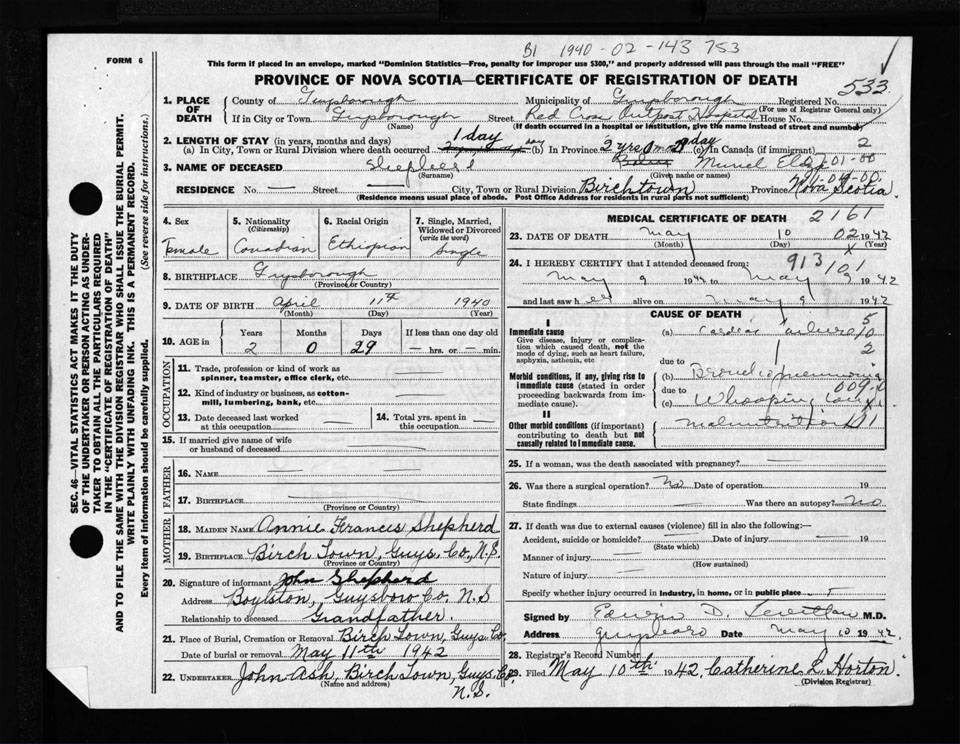 B1 1940-02-143 753
FORM 6
This form if placed in an envelope, marked "Dominion Statistics—Free, penalty for improper use $300," and properly addressed will pass through the mail "FREE"
PROVINCE OF NOVA SCOTIA—CERTIFICATE OF REGISTRATION OF DEATH
533
1. PLACE OF DEATH
County of Guysborough Municipality of Guysborough Registered No.
(For use of Registrar General only)
If in City or Town Guysborough Street Red Cross Outpost Hospital House No.
(Name) (If death occurred in a hospital or institution, give the name instead of street and number)
2. LENGTH OF STAY (in years, months and days)
(a) In City, Town or Rural Division where death occurred 1 day (b) In Province 2 yrs 0 m 29 day (c) In Canada (if immigrant) 2
3. NAME OF DECEASED Shepherd Muriel
(Surname) (Given name or names)
RESIDENCE No. — Street — City, Town or Rural Division Birchtown Province Nova Scotia
(Residence means usual place of abode. Post Office Address for residents in rural parts not sufficient)
4. Sex Female
5. Nationality (Citizenship) Canadian
6. Racial Origin Ethiopian
7. Single, Married, Widowed or Divorced (write the word) Single
8. BIRTHPLACE Guysborough
(Province or Country)
9. DATE OF BIRTH April 11th 1940
(Month) (Day) (Year)
10. AGE in Years 2 Months 0 Days 29 If less than one day old — hrs. or — min.
OCCUPATION
11. Trade, profession or kind of work as spinner, teamster, office clerk, etc. —
12. Kind of industry or business, as cotton-mill, lumbering, bank, etc. —
13. Date deceased last worked at this occupation —
14. Total yrs. spent in this occupation —
15. If married give name of wife or husband of deceased —
FATHER
16. NAME —
17. BIRTHPLACE —
(Province or Country)
MOTHER
18. MAIDEN NAME Annie Frances Shepherd
19. BIRTHPLACE Birch Town, Guys. Co., N.S.
(Province or Country)
20. Signature of informant John Shepherd
Address Boylston, Guysboro Co. N.S
Relationship to deceased Grandfather.
21. Place of Burial, Cremation or Removal Birch Town, Guys. Co.
Date of burial or removal May 11th 1942
22. UNDERTAKER John Ash, Birch Town, Guys. Co.
(Name and address)
N.S.
MEDICAL CERTIFICATE OF DEATH 2161
23. DATE OF DEATH May 10 1942
(Month) (Day) (Year)
24. I HEREBY CERTIFY that I attended deceased from:
May 9 1942 to May 9 1942
and last saw her alive on May 9 1942
CAUSE OF DEATH
I
Immediate cause
Give disease, injury or complication which caused death, not the mode of dying, such as heart failure, asphyxia, asthenia, etc
(a) Cardiac Failure
due to
Morbid conditions, if any, giving rise to immediate cause (stated in order proceeding backwards from immediate cause).
(b) Bronchopneumonia
due to
(c) Whooping Cough
II
Other morbid conditions (if important) contributing to death but not causally related to immediate cause.
Malnutrition
25. If a woman, was the death associated with pregnancy? —
26. Was there a surgical operation? No Date of operation 19
State findings Was there an autopsy? No
27. If death was due to external causes (violence) fill in also the following:—
Accident, suicide or homicide? — Date of injury — 19
(State which)
Manner of injury —
(How sustained)
Nature of injury —
Specify whether injury occurred in industry, in home, or in public place
Signed by Edwin D. M.D.
Address Date May 10 1942
28. Registrar's Record Number
29. Filed May 10th 1942, Catherine L. Horton.
(Division Registrar)
SEC. 46—VITAL STATISTICS ACT MAKES IT THE DUTY
OF THE UNDERTAKER OR PERSON ACTING AS UNDERTAKER TO OBTAIN ALL THE PARTICULARS REQUIRED
IN THE "CERTIFICATE OF REGISTRATION OF DEATH"
AND TO FILE THE SAME WITH THE DIVISION REGISTRAR WHO SHALL ISSUE THE BURIAL PERMIT.
WRITE PLAINLY WITH UNFADING INK. THIS IS A PERMANENT RECORD.
Every item of information should be carefully supplied. (See reverse side for instructions.)